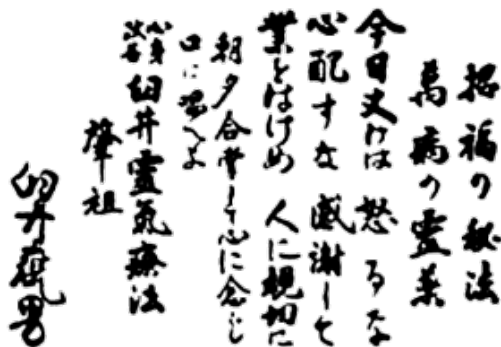 招福の秘法
萬病の霊薬
今日丈けは 怒るな
心配すな 感謝して
業をはけめ 人に親切に
朝夕合掌して心に念じ
口に唱へよ
心身改善 臼井靈気療法
肇祖
臼井甕男